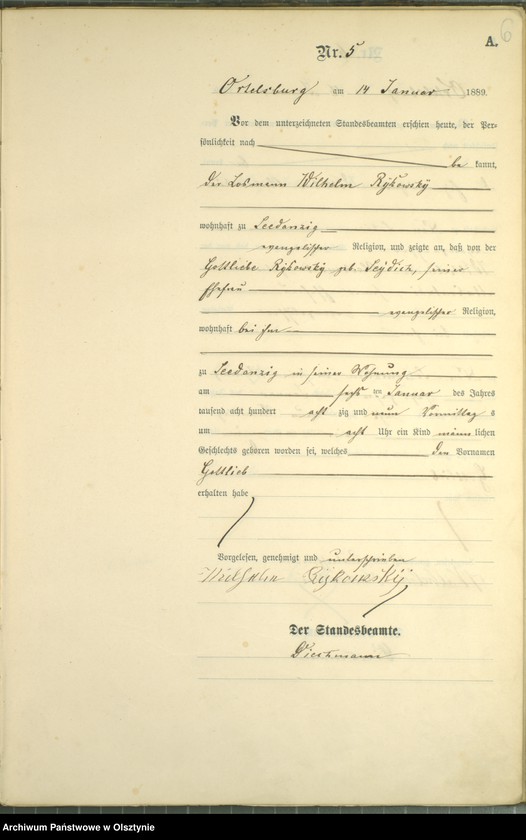 6
A.
Nr. 5
Ortelsburg am 14 Januar 1889.
Vor dem unterzeichneten Standesbeamten erschien heute, der Per-
sönlichkeit nach
be kannt,
der Losmann Wilhelm Rykowsky
wohnhaft zu Seedanzig
evangelischer Religion, und zeigte an, daß von der
Gottliebe Rykowsky geb. seiner
Ehefrau
evangelischer Religion,
wohnhaft bei ihm
zu Seedanzig in seiner Wohnung
am sechs ten Januar des Jahres
tausend acht hundert acht zig und neun Vormittag s
um acht Uhr ein Kind männ lichen
Geschlechts geboren worden sei, welches den Vornamen
Gottlieb
erhalten habe
Vorgelesen, genehmigt und unterschrieben
Wilhelm Rykowsky
Der Standesbeamte.
Archiwum Państwowe w Olsztynie